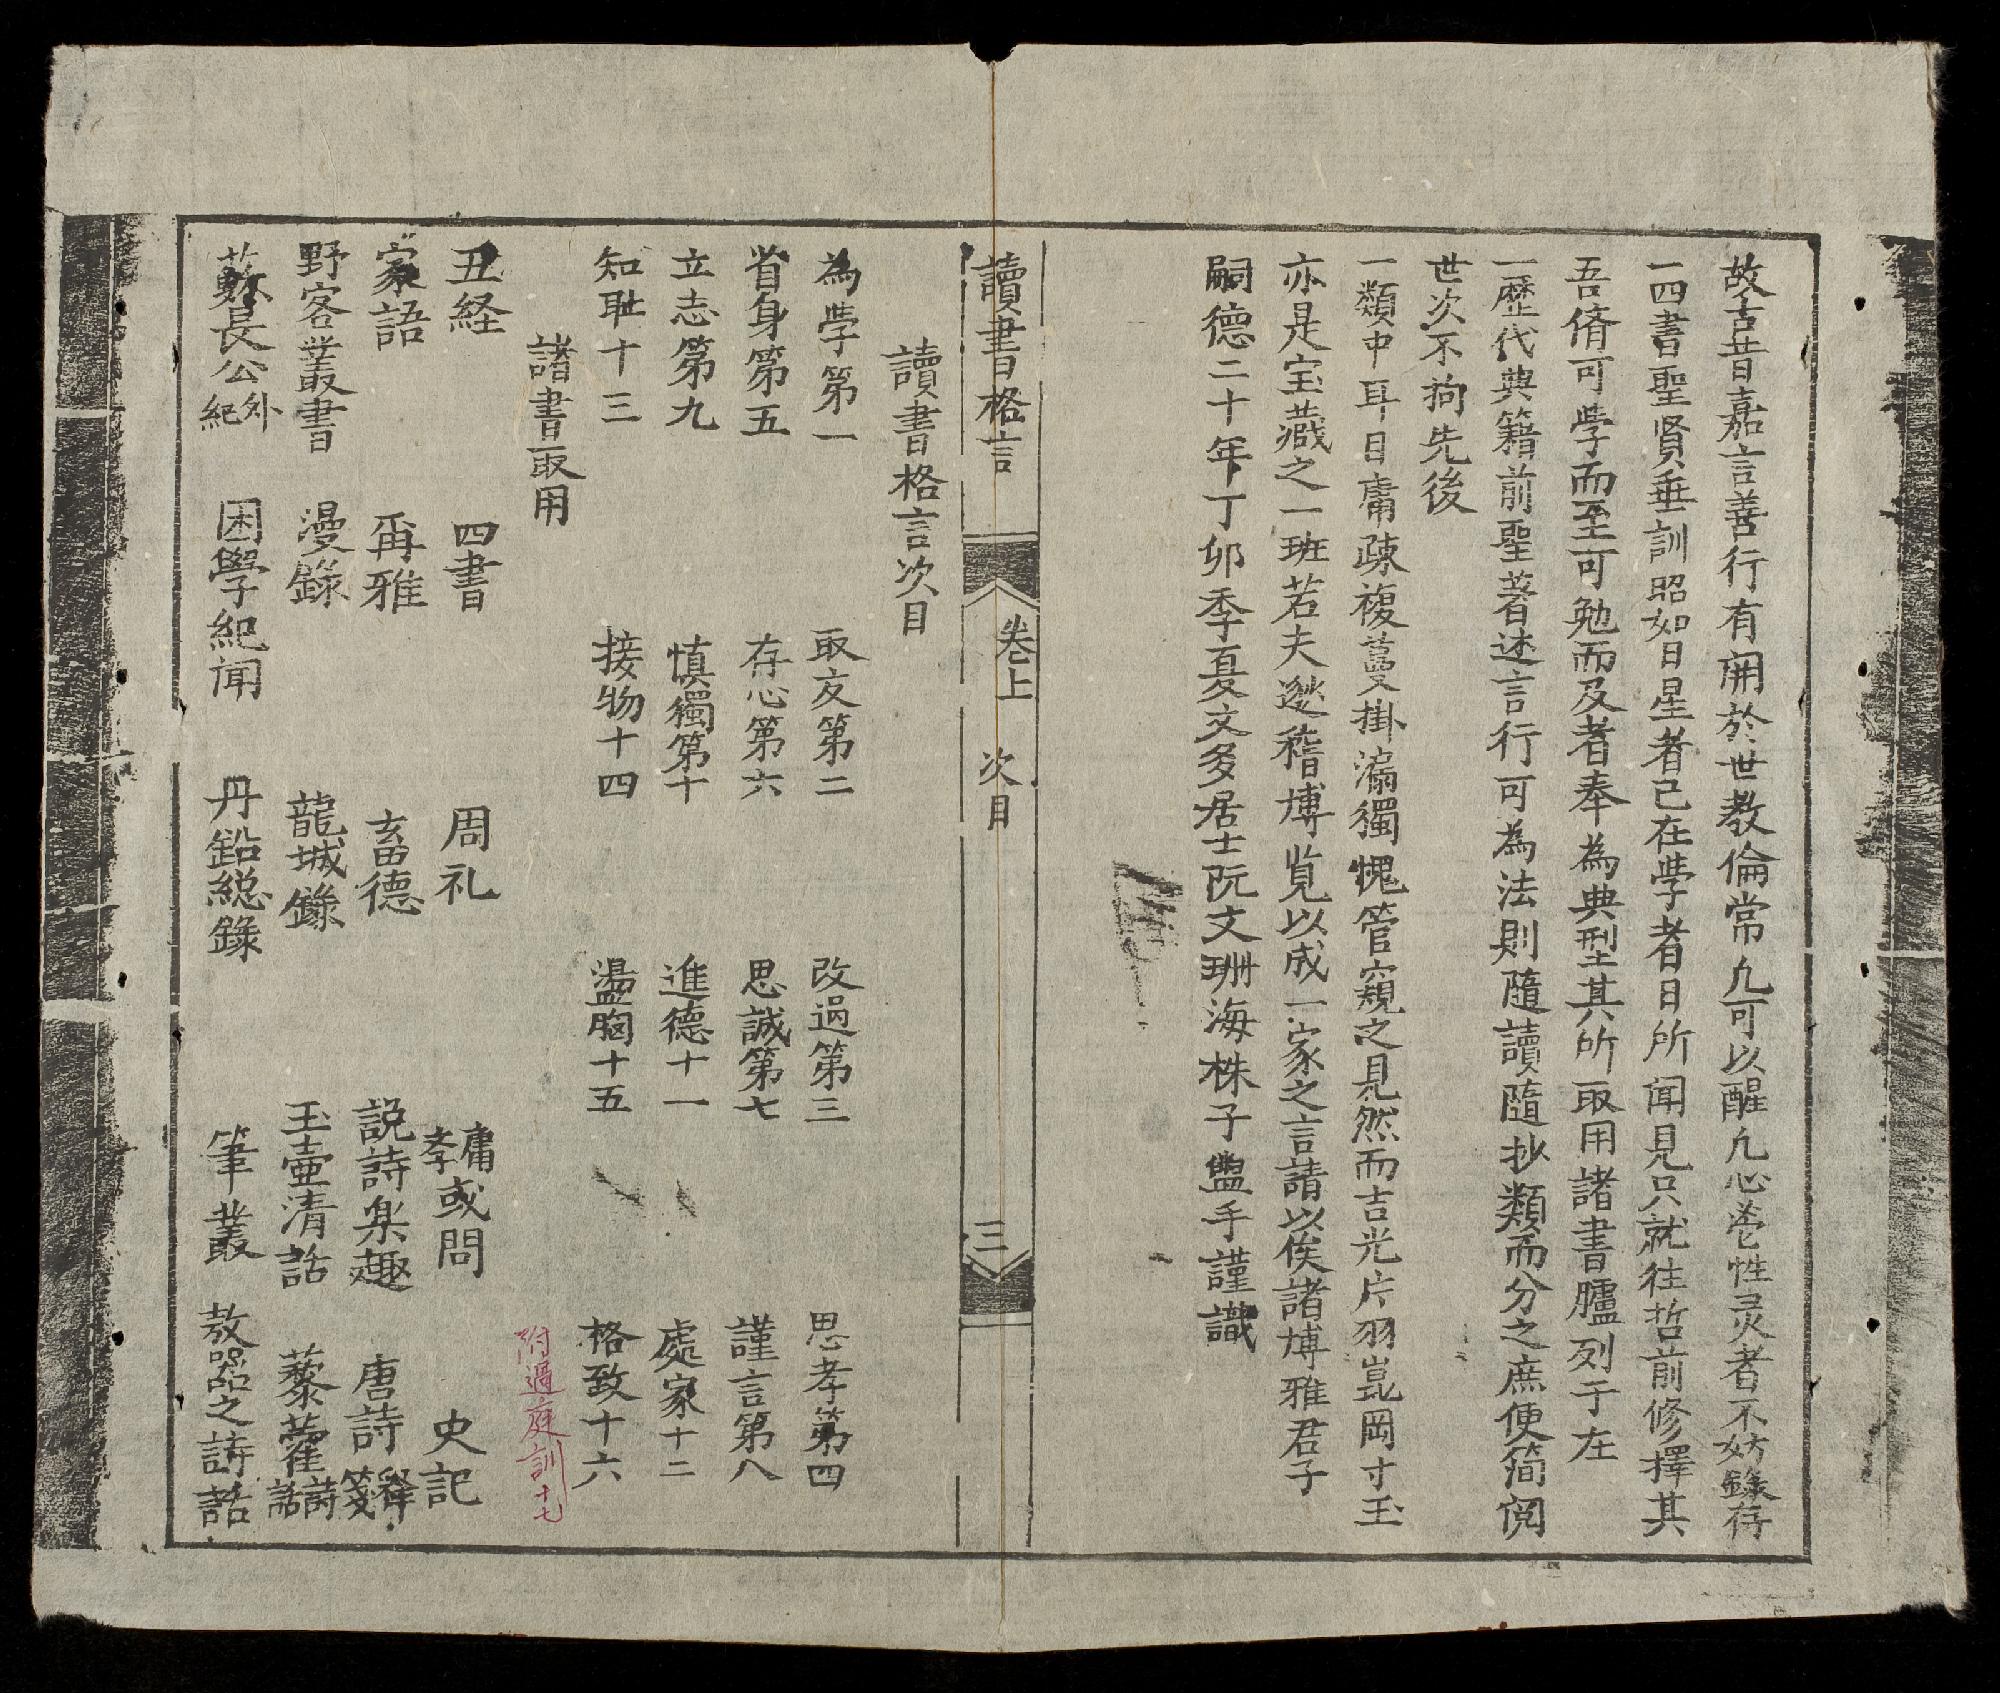 故古昔嘉言善行有開於世教倫常凡可以醒凡心卷性灵者不妨錄存
一四書聖賢垂訓昭如日星者已在學者日所闻見只就往哲前修擇其
吾脩可學而至可勉而及者奉為典型其所取用諸書臚列于左
一歷代典籍前聖著述言行可為法則隨讀隨抄類而分之庶便简阅
世次不拘先後
一類中耳目庸疎複蔓掛漏獨愧管窺之見然而吉光片羽崑岡寸玉
亦是宝藏之一班若夫邃稽博覧以成一家之言請以俟諸博雅君子
嗣德二十年丁卯季夏文多居士阮文珊海株子盥手謹識
讀書格言 卷上 次目 三
讀書格言次目
為學第一 取友第二 改過第三 思孝第四
省身第五 存心第六 思誠第七 謹言第八
立志第九 慎獨第十 進德十一 處家十二
知耻十三 接物十四 盪胸十五 格致十六
附過庭訓十七
諸書取用
五経 四書 周礼 庸孝或問 史記
家語 爯雅 畜德 説詩楽趣 唐詩箋釋
野客叢書 漫錄 龍城錄 玉壷清話 藜藿詩話
蘇長公外紀 困學紀闻 丹鉛総錄 筆叢 敖器之詩話